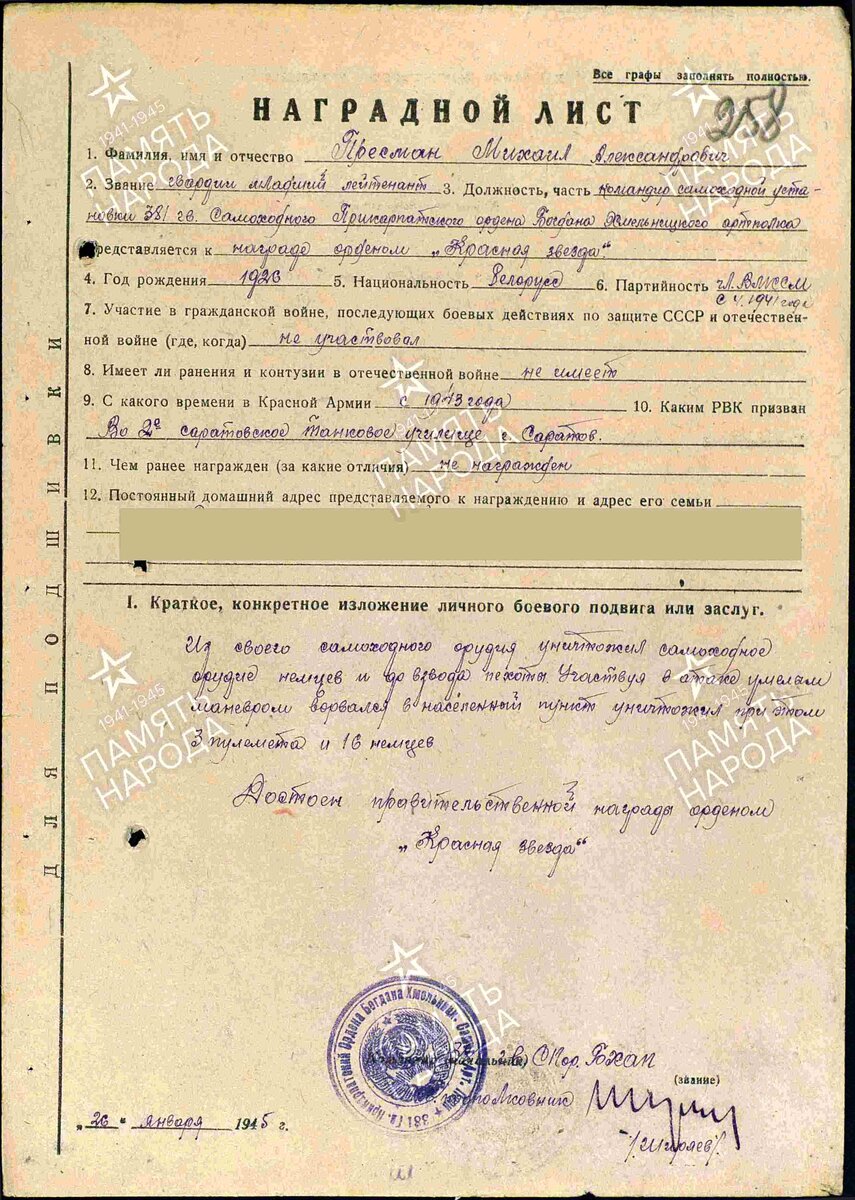 Все графы заполнять полностью.
258
НАГРАДНОЙ ЛИСТ
1. Фамилия, имя и отчество Пресман Михаил Александрович
2. Звание гвардии младший лейтенант 3. Должность, часть командир самоходной уста-
новки 381 гв. Самоходного Прикарпатского ордена Богдана Хмельницкого артполка
представляется к награде орденом „Красная звезда"
4. Год рождения 1923 5. Национальность Белорусс 6. Партийность чл. ВЛКСМ
с 1941 года
7. Участие в гражданской войне, последующих боевых действиях по защите СССР и отечествен-
ной войне (где, когда) не участвовал
8. Имеет ли ранения и контузии в отечественной войне не имеет
9. С какого времени в Красной Армии с 1943 года 10. Каким РВК призван
Во 2е саратовское танковое училище г. Саратов.
11. Чем ранее награжден (за какие отличия) не награжден
12. Постоянный домашний адрес представляемого к награждению и адрес его семьи
I. Краткое, конкретное изложение личного боевого подвига или заслуг.
Из своего самоходного орудия уничтожил самоходное
орудие немцев и до взвода пехоты. Участвуя в атаке умелам
маневром ворвался в населенный пункт уничтожил при этом
3 пулемета и 16 немцев
Достоен правительственной награды орденом
„Красная звезда"
гв. С Пор. БХАП
(звание)
„26" января 1945 г.
ДЛЯ ПОДШИВКИ
1941-1945
ПАМЯТЬ
НАРОДА